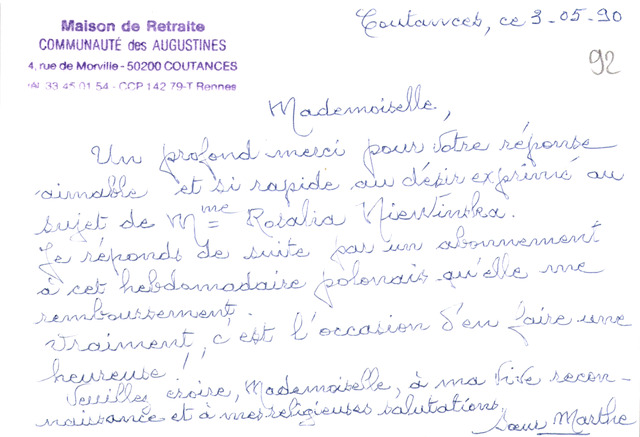 Maison de Retraite
COMMUNAUTÉ des AUGUSTINES
4, rue de Morville - 50200 COUTANCES
Tél. 33 45 01 54 - CCP 142 79-T Rennes
Coutances, ce 3-05-90
92
Mademoiselle,
Un profond merci pour votre réponse
aimable et si rapide au désir exprimé au
sujet de Mme Rosalia
Je réponds de suite par un abonnement
à cet hebdomadaire polonais qu'elle me
remboussement.
Vraiment, c'est l'occasion d'en faire une
heureuse !
Veuillez croire, Mademoiselle, à ma vive recon-
naissance et à mes religieuses salutations.
Sœur Marthe